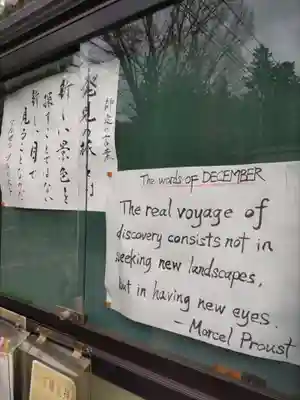 師走の言葉
発見の旅とは
新しい景色を
探すことではない
新しい目で
見ることなのだ
The words of DECEMBER
The real voyage of
discovery consists not in
seeking new landscapes,
but in having new eyes.
— Marcel Proust